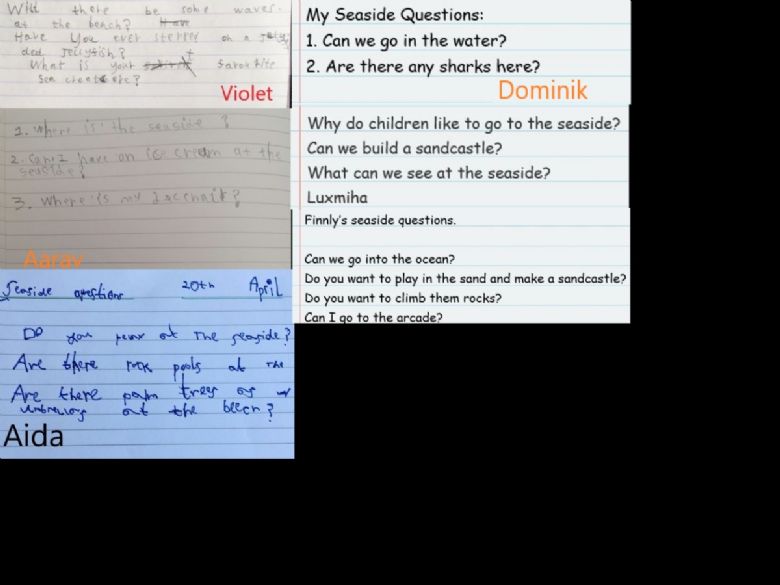 Will there be some waves
at the beach? Have
Have you ever stepped on a
ded Jellyfish?
What is your favourite
Sea creature?
Violet
My Seaside Questions:
1. Can we go in the water?
2. Are there any sharks here?
Dominik
1. Where is the seaside ?
2. Can I have an ice cream at the
seaside?
3. Where is my
Aarav
Why do children like to go to the seaside?
Can we build a sandcastle?
What can we see at the seaside?
Luxmiha
Finnly's seaside questions.
Can we go into the ocean?
Do you want to play in the sand and make a sandcastle?
Do you want to climb them rocks?
Can I go to the arcade?
Seaside questions 20th April
Do you at the seaside?
Are there rock pools at the
Are there palm trees or
at the
Aida